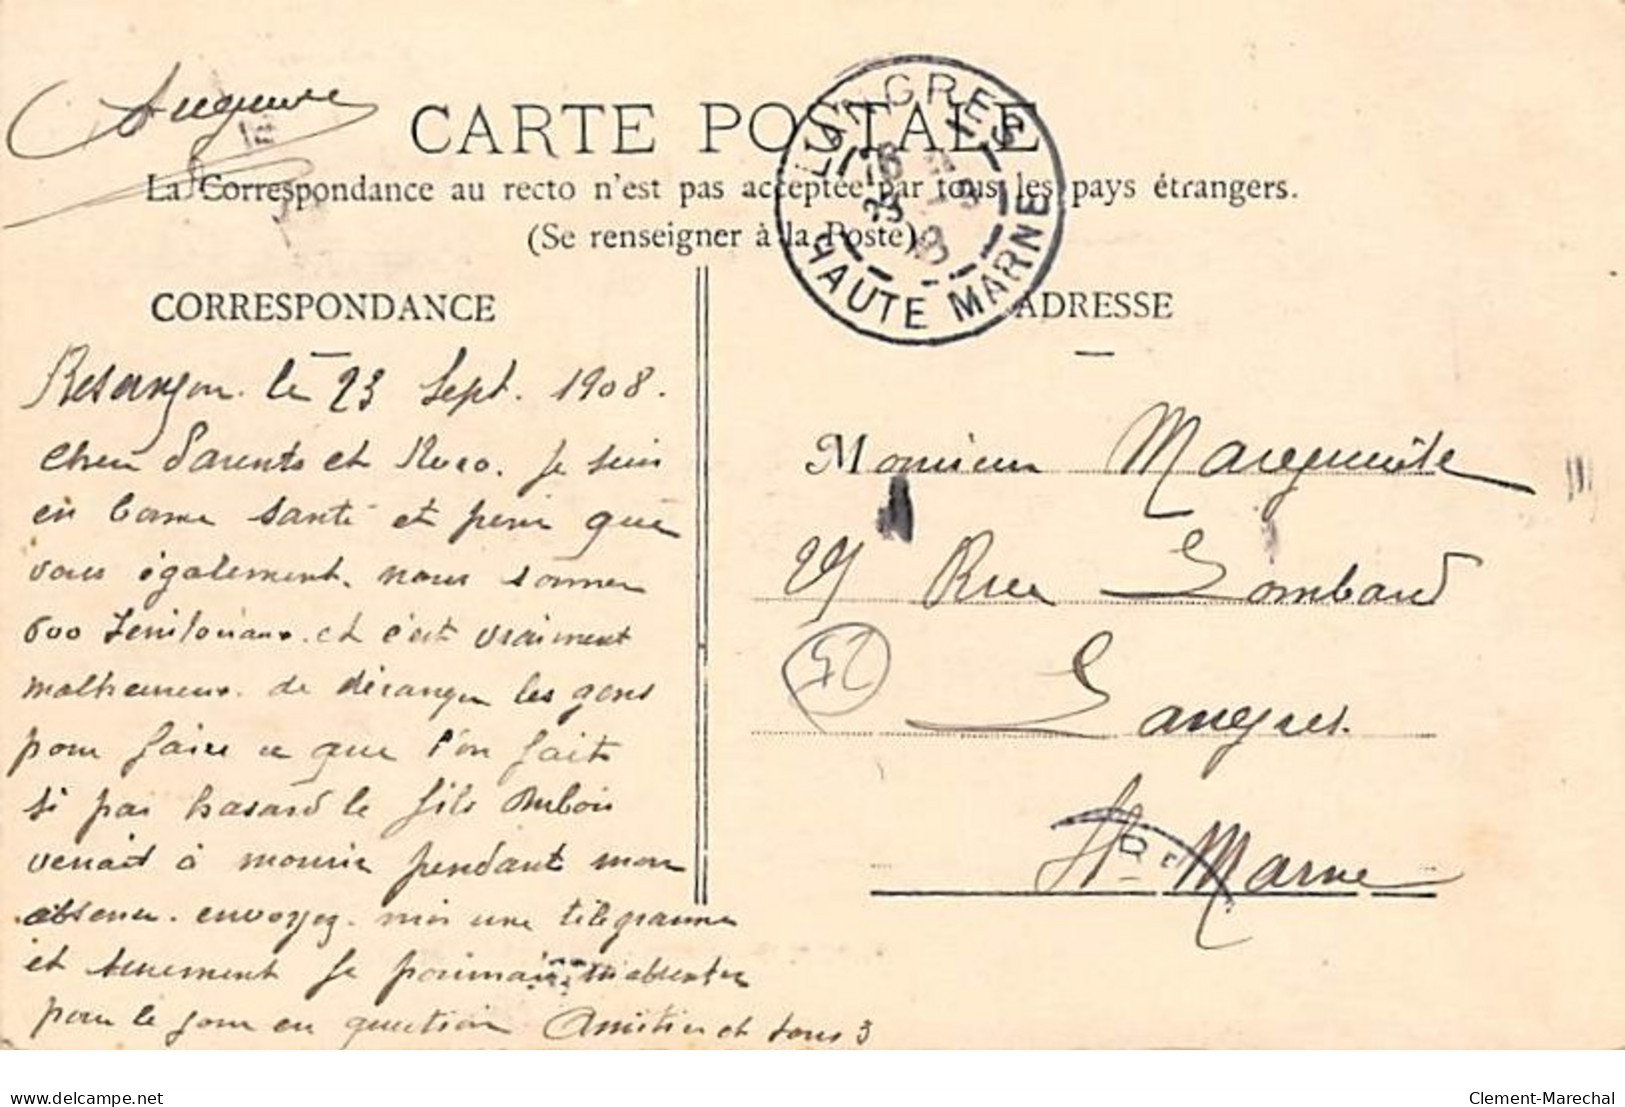 CARTE POSTALE
La Correspondance au recto n'est pas acceptée par tous les pays étrangers.
(Se renseigner à la Poste)
LANGRES
HAUTE MARNE
CORRESPONDANCE
Besançon le 23 Sept. 1908.
Cher Parents et je suis
en bonne santé et que
vous également. nous sommes
600 et c'est vraiment
malheureux. de déranger les gens
pour faire ce que l'on fait
si par hasard le fils Dubois
venait à mourir pendant mon
absence. envoyez. moi une télégramme
et je pourrais m'absenter
pour le jour en question Amitiés et tous 3
ADRESSE
Monsieur Marguerite
Rue Lombard
52
Langres.
Hte Marne
www.delcampe.net
Clement-Marechal